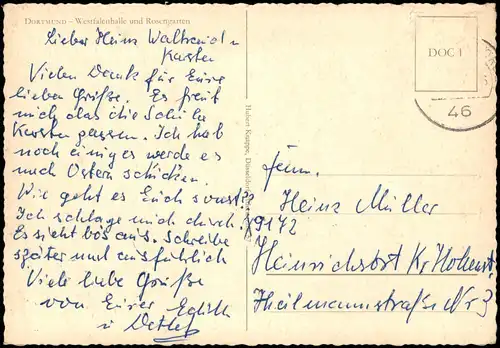 DORTMUND - Westfalenhalle und Rosengarten
Lieber Heinz Waltraud u
Karsten
Vielen Dank für Eure
lieben Grüße. Es freut
mich das die Schuhe
Karsten passen. Ich hab
noch einiges werde es
nach Ostern schicken.
Wie geht es Euch sonst?
Ich schlage mich durch.
Es sieht bös aus. Schreibe
später und ausführlich
Viele liebe Grüße
von Eurer Edith
u Detlef
Hubert Knappe, Düsseldorf
DOC 1
46
Fam.
Heinz Müller
9172
Heinrichsort Kr. Hohenst.
Thälmannstraße Nr 3